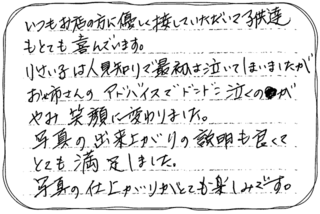 いつもお店の方に優しく接していただいて子供達
もとても喜んでいます。
小さい子は人見知りで最初は泣いてしまいましたが
お姉さんのアドバイスでドンドン泣くのが
やみ笑顔に変わりました。
写真の出来上がりの説明も良くて
とても満足しました。
写真の仕上がりがとても楽しみです。